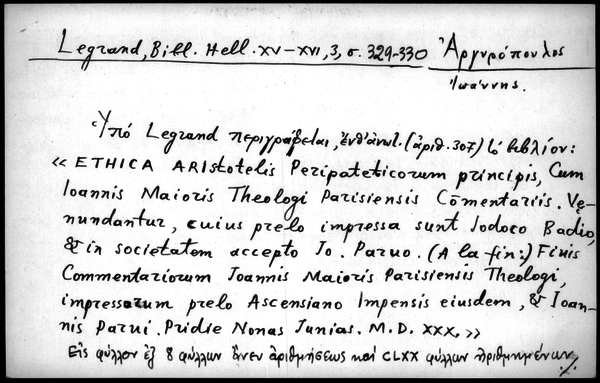 Legrand, Bibl. Hell. XV–XVI, 3, σ. 329-330 Ἀργυρόπουλος
Ἰωάννης.
Ὑπό Legrand περιγράφεται, ἔνθ' ἀνωτ. (ἀριθ. 307) τό βιβλίον:
« ETHICA ARIStotelis Peripateticorum principis, Cum
Ioannis Maioris Theologi Parisiensis Cōmentariis. Vę-
nundantur, cuius prelo impressa sunt Iodoco Badio,
& in societatem accepto Io. Paruo. (A la fin:) Finis
Commentariorum Ioannis Maioris Parisiensis Theologi,
impressorum prelo Ascensiano Impensis eiusdem, & Ioan-
nis Parui. Pridie Nonas Iunias. M.D. XXX. »
Εἰς φύλλον ἐξ 8 φύλλων ἄνευ ἀριθμήσεως καί CLXX φύλλων ἠριθμημένων.